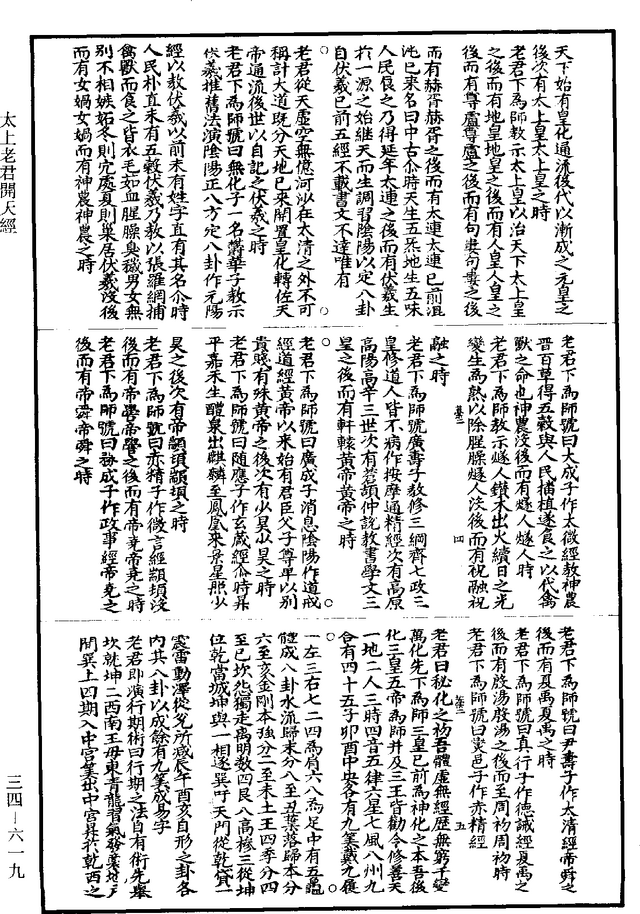 太上老君開天經
三四－六一九
天下始有皇化通流後代以漸成之元皇之
後次有太上皇太上皇之時
老君下為師教示太上皇以治天下太上皇
之後而有地皇地皇之後而有人皇人皇之
後而有尊盧尊盧之後而有句婁句婁之後
而有赫胥赫胥之後而有太連太連已前混
沌已來名曰中古尒時天生五炁地生五味
人民食之乃得延年太連之後而有伏羲生
於一源之始継天而生調習陰陽以定八卦
自伏羲已前五經不載書文不達唯有
老君從天虛空無億河沙在太清之外不可
稱計大道既分天地已來開置皇化轉佐天
帝通流後世以自記之伏羲之時
老君下為師號曰無化子一名欝華子教示
伏羲推舊法演陰陽正八方定八卦作元陽
經以教伏羲以前未有姓字直有其名尒時
人民朴直未有五穀伏羲乃教以張羅網捕
禽獸而食之皆衣毛茹血腥臊臭穢男女無
別不相嫉妬冬則穴處夏則巢居伏羲沒後
而有女媧女媧而有神農神農之時
老君下為師號曰大成子作太微經教神農
甞百草得五穀與人民播植遂食之以代禽
獸之命也神農沒後而有燧人燧人時
老君下為師教示燧人鑽木出火續日之光
變生為熟以除腥臊燧人沒後而有祝融祝
四
融之時
老君下為師號廣壽子教修三綱齊七政三
皇修道人皆不病作按摩通精經次有高原
高陽高辛三世次有蒼頡仲說教書學文三
皇之後而有軒轅黃帝黃帝之時
老君下為師號曰廣成子消息陰陽作道戒
經道經黃帝以來始有君臣父子尊卑以別
貴賤有殊黃帝之後次有少昊少昊之時
老君下為師號曰隨應子作玄藏經尒時昇
平嘉禾生醴泉出麒麟至鳳凰來景星照少
昊之後次有帝顓頊顓頊之時
老君下為師號曰赤精子作微言經顓頊沒
後而有帝嚳帝嚳之後而有帝堯帝堯之時
老君下為師號曰務成子作政事經帝堯之
後而有帝舜帝舜之時
老君下為師號曰尹壽子作太清經帝舜之
後而有夏禹夏禹之時
老君下為師號曰真行子作德誡經夏禹之
後而有殷湯殷湯之後而至周初周初時
老君下為師號曰燮邑子作赤精經
五
老君曰秘化之初吾體虛無經歷無窮千變
萬化先下為師三皇已前為神化之本吾後
化三皇五帝為師并及三王皆勸令修善天
一地二人三時四音五律六星七風八州九
合有四十五子卯酉中央各有九筭戴九履
一左三右七二四為肩六八為足中有五龜
體成八卦水流歸末分八至丑葉落歸本分
六至亥金剛本強分二至未土王四季分四
至巳坎怨獨走离明數四艮八高椮三從坤
位乾當城坤與一相逐巽行天門從乾貸一
震雷動澤從兌所减辰午酉亥自形之卦各
內其八卦以成餘有九筭成易字
老君即演行期術曰行期之法自有術先舉
坎就坤二西南王毋東青龍習氣發藥地戶
開巽上四期入中宮筭出中宮昇於乾西之